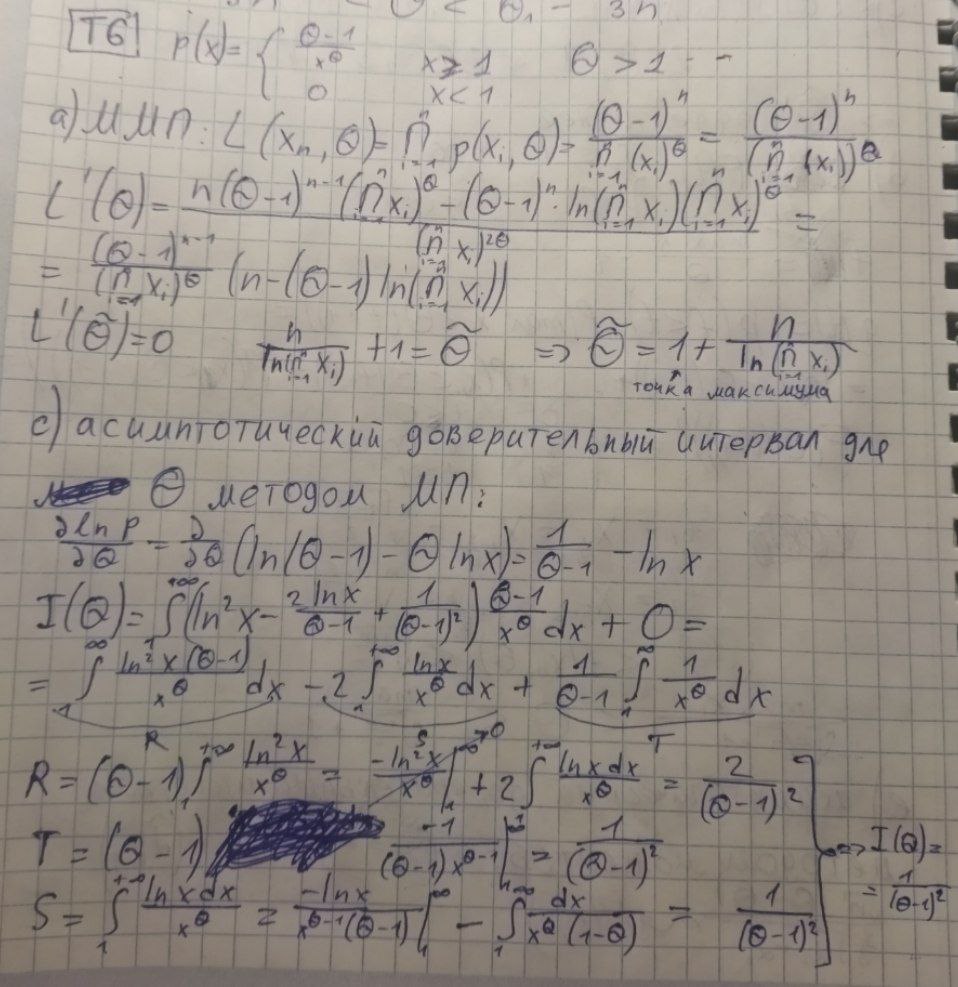 Т6 p(x)= { (θ-1)/x^θ x⩾1 θ>1
0 x<1
а) ММП: L(x_n, θ)= ∏_{i=1}^n p(x_i, θ)= (θ-1)^n / ∏_{i=1}^n (x_i)^θ = (θ-1)^n / (∏_{i=1}^n (x_i))^θ
L'(θ)= [n(θ-1)^{n-1} (∏_{i=1}^n x_i)^θ - (θ-1)^n · ln(∏_{i=1}^n x_i)(∏_{i=1}^n x_i)^θ] / (∏_{i=1}^n x_i)^{2θ} =
= (θ-1)^{n-1} / (∏_{i=1}^n x_i)^θ (n-(θ-1) ln(∏_{i=1}^n x_i))
L'(θ̃)=0 n / ln(∏_{i=1}^n x_i) +1= θ̃ => θ̃ = 1+ n / ln(∏_{i=1}^n x_i)
точка максимума
с) асимптотический доверительный интервал для
θ методом МП:
∂ln p/∂θ = ∂/∂θ (ln(θ-1) - θ ln x)= 1/(θ-1) - ln x
I(θ)= ∫_1^{+∞} (ln²x - 2 ln x/(θ-1) + 1/(θ-1)²) (θ-1)/x^θ dx + 0 =
= ∫_1^∞ ln²x (θ-1)/x^θ dx - 2 ∫_1^∞ ln x/x^θ dx + 1/(θ-1) ∫_1^∞ 1/x^θ dx
R S T
R = (θ-1) ∫_1^{+∞} ln²x/x^θ = -ln²x/x^θ |_1^∞ →0 + 2 ∫_1^{+∞} ln x dx/x^θ = 2/(θ-1)²
T = (θ-1) -1/((θ-1) x^{θ-1}) |_1 = 1/(θ-1)² => I(θ)=
= 1/(θ-1)²
S = ∫_1^{+∞} ln x dx/x^θ = -ln x/(x^{θ-1}(θ-1)) |_1^∞ - ∫_1^∞ dx/(x^θ (1-θ)) = 1/(θ-1)²